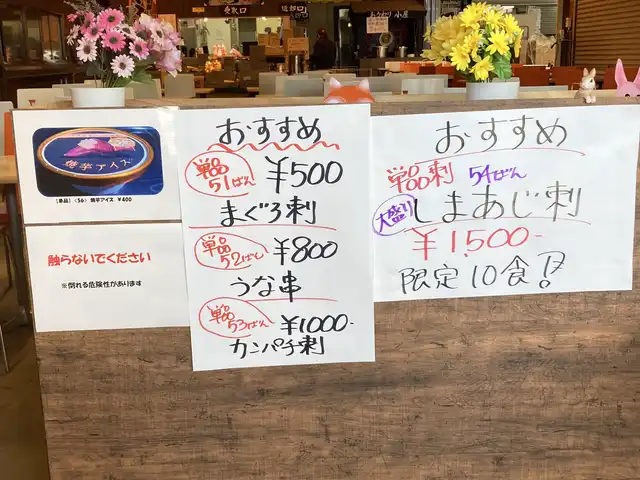 焼芋アイス
【単品】〈56〉 焼芋アイス ¥400
触らないでください
※倒れる危険性があります
おすすめ
単品
51ばん
¥500
まぐろ刺
単品
52ばん
¥800
うな串
単品
53ばん
¥1000-
カンパチ刺
おすすめ
単品刺 54ばん
大盛り
しまあじ刺
¥1,500-
限定10食!